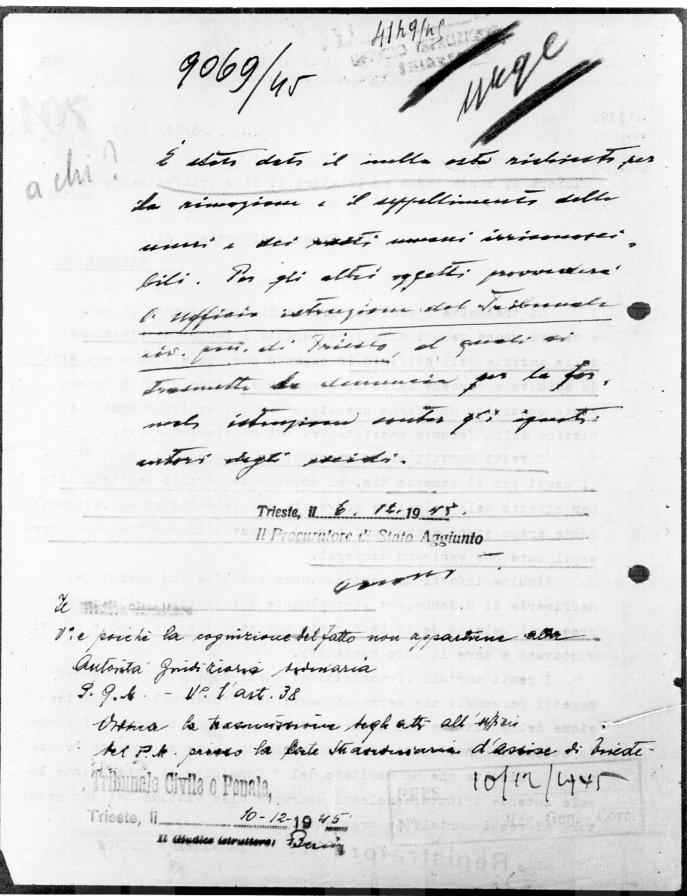 4149/45
9069/45
urge
a chi?
È stato dato il nulla osta richiesto per
la rimozione e il seppellimento delle
ceneri e dei resti umani irriconosci-
bili. Per gli altri oggetti provvederà
l'ufficio istruzione del Tribunale
civ. pen. di Trieste, al quale si
trasmette la denuncia per la for-
male istruzione contro gli ignoti
autori degli eccidi.
Trieste, li 6. 12. 1945.
Il Procuratore di Stato Aggiunto
V° e poichè la cognizione del fatto non appartiene alla
Autorità Giudiziaria ordinaria
P. Q. M. - V°. l'art. 38
Ordina la trasmissione degli atti all'ufficio
del P.M. presso la Corte Straordinaria d'assise di Trieste.
10/12/1945
Tribunale Civile e Penale,
Trieste, li 10-12-1945
Il Giudice istruttore: